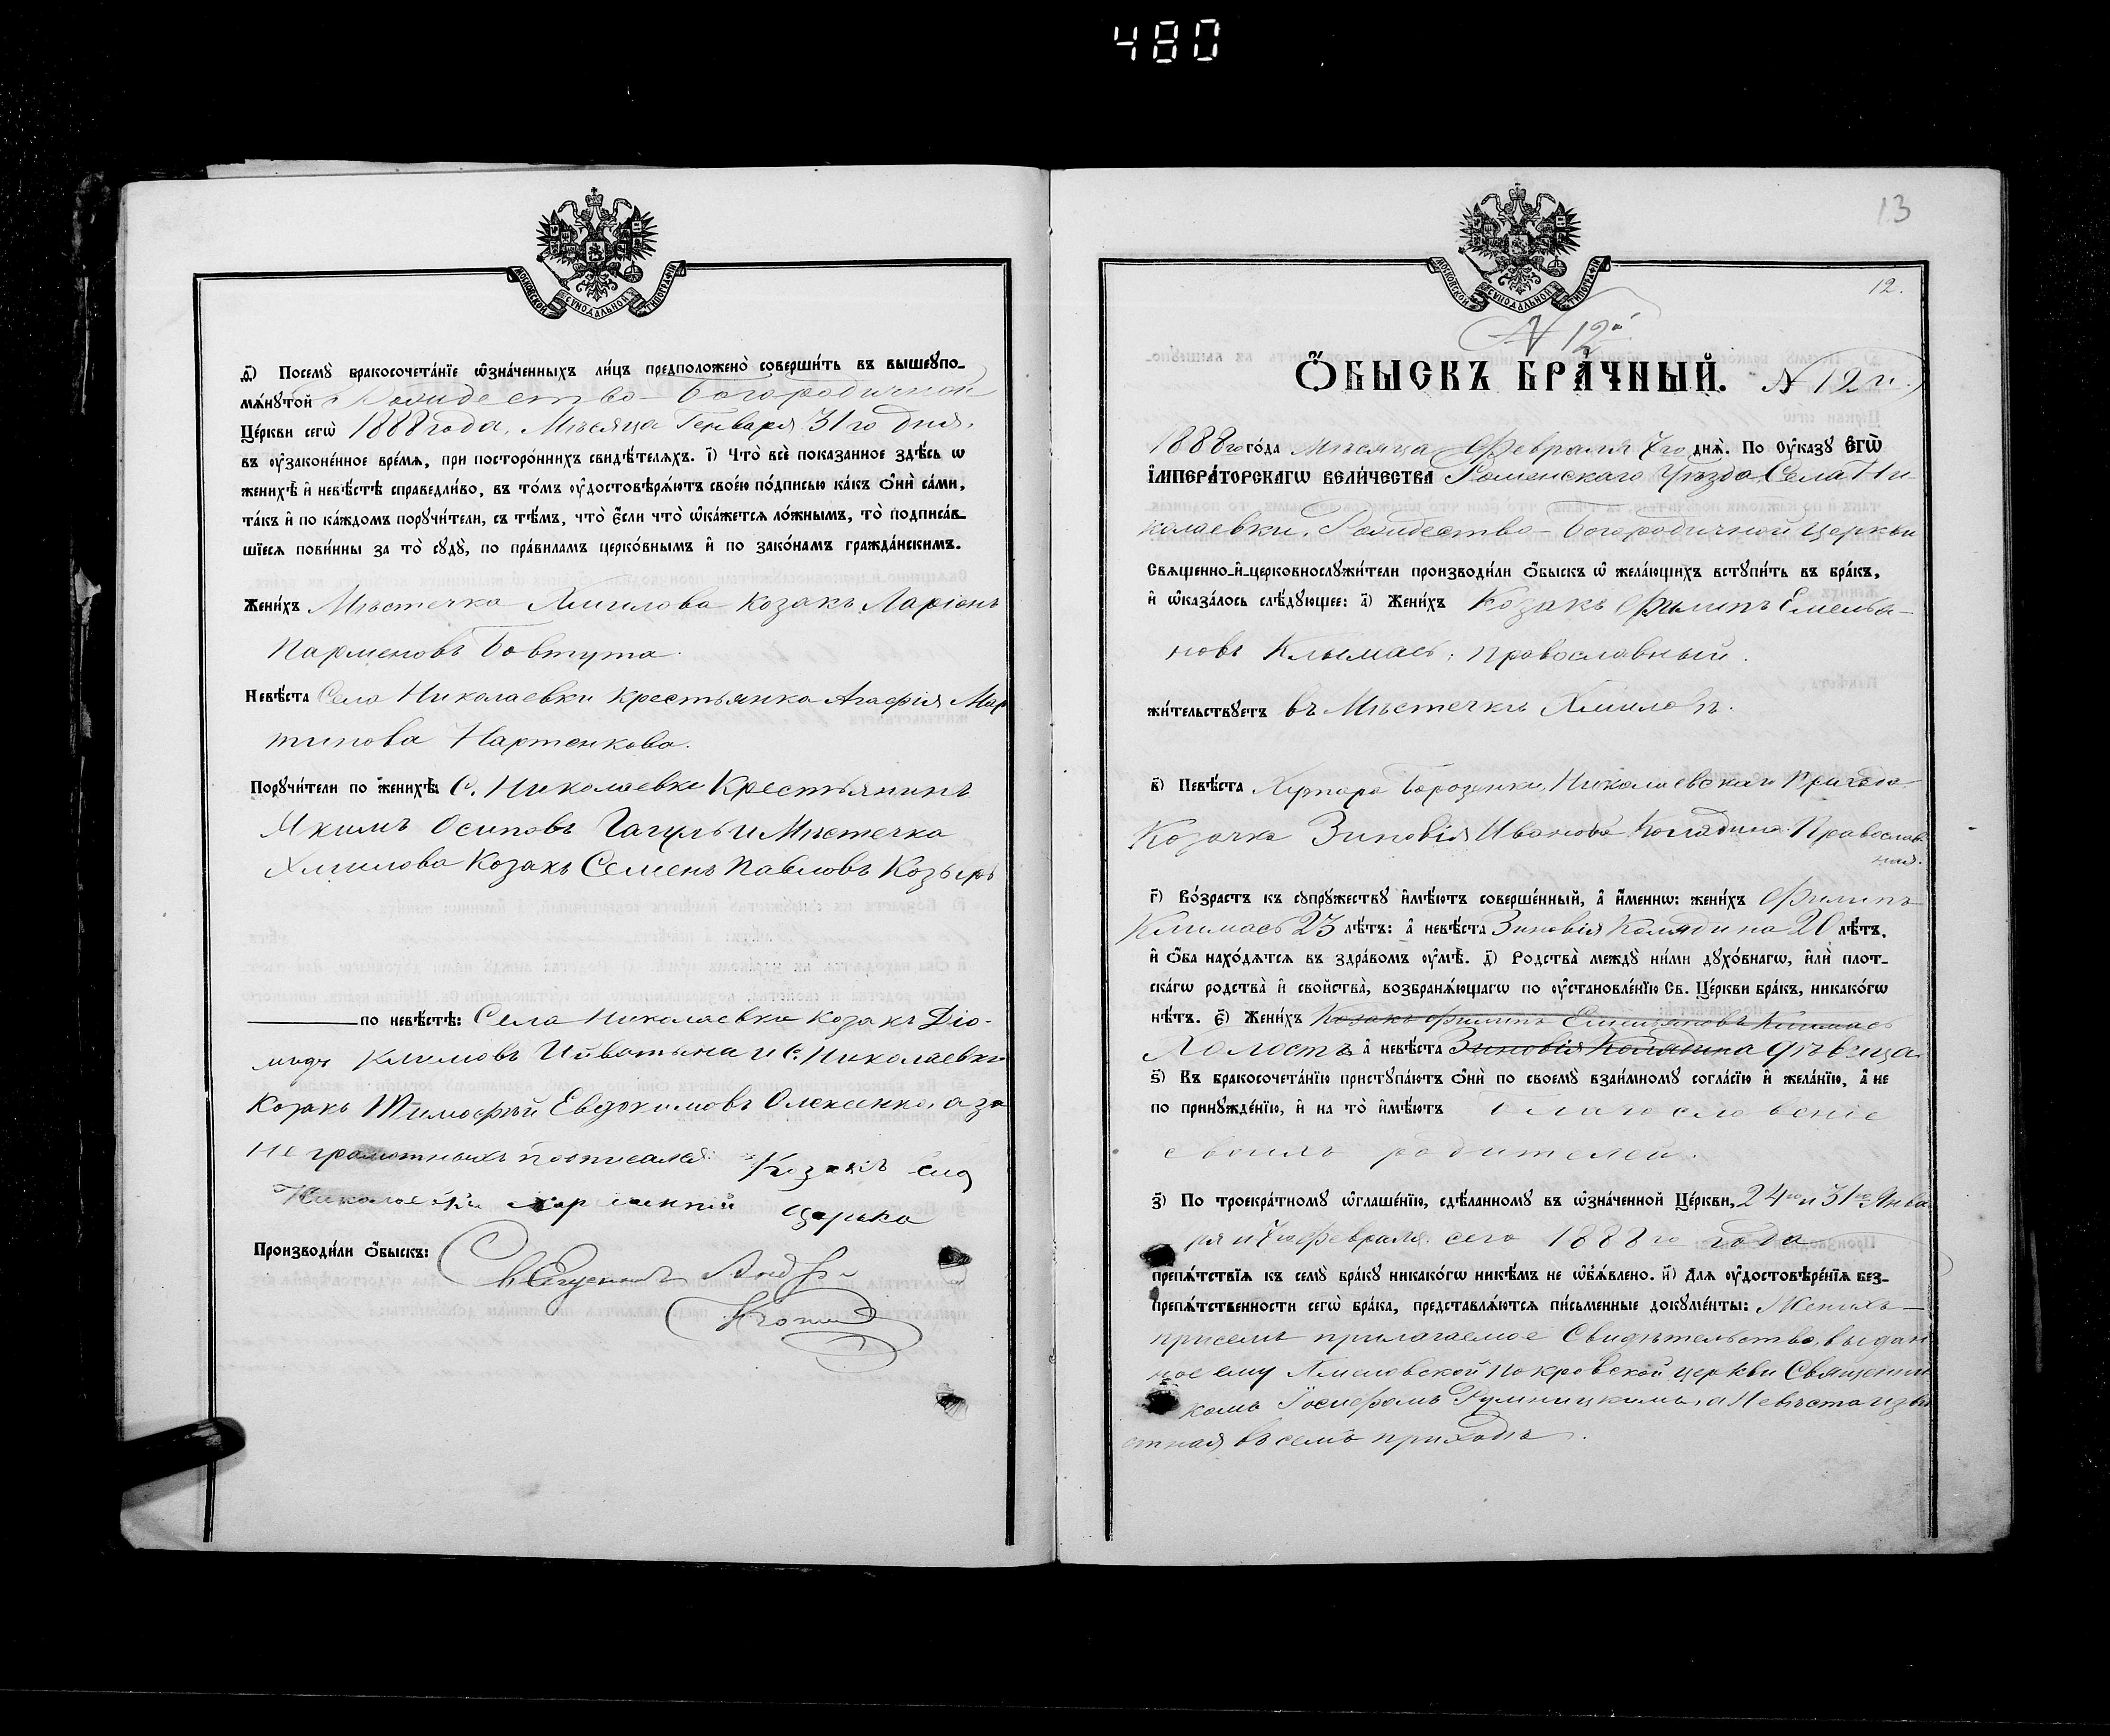 480
МОСКОВСКОЙ СѴНОДАЛЬНОЙ ТИПОГРАФІИ
д҃) Посемꙋ̀ бракосочета́нїе ѡ҆зна́ченныхъ ли́цъ предположено̀ соверши́ть въ вышеꙋпо-
мѧ́нꙋтой Рождество-Богородичной
Це́ркви сегѡ̀ 1888 года, Мѣсяца Генваря 31го дня,
въ ᲂу҆зако́ненное вре́мѧ, при посторо́ннихъ свидѣ́телѧхъ. і҃) Что̀ всѐ показанное здѣ́сь ѡ
женихѣ̀ и҆ невѣ́стѣ справедли́во, въ то́мъ ᲂу҆достовѣрѧ́ютъ свое́ю по́дписью ка́къ Ѻ҆нѝ са́ми,
та́къ и҆ по ка́ждомъ порꙋчи́тели, съ тѣ́мъ, что̀ є҆́сли что̀ ѡ҆ка́жется ло́жнымъ, то̀ подписа́в-
шїеся пови́нны за то̀ сꙋдꙋ̀, по пра́виламъ церко́внымъ и҆ по зако́намъ гражда́нскимъ.
Жени́хъ Мѣстечка Хмилова Козакъ Ларіонъ
Парменовъ Бовтута.
Невѣ́ста Села Николаевки Крестьянка Агафія Мар
тинова Нартенкова.
Порꙋчи́тели по женихѣ̀: С. Николаевки Крестьянинъ
Якимъ Осиповъ Гагулъ и Мѣстечка
Хмилова Козакъ Семенъ Павловъ Козыръ
по невѣ́стѣ: Села Николаевки Козакъ Діо-
мидъ Климовъ и С. Николаевки
Козакъ Тимофѣй Евдокимовъ Олексенко, а за
не грамотныхъ подписался Козакъ
Николаевки
Производи́ли Ѻ҆́быскъ:
13
МОСКОВСКОЙ СѴНОДАЛЬНОЙ ТИПОГРАФІИ
12.
N 12й
Ѻ҆́БЫСКЪ БРА́ЧНЫЙ. N 12й.
1888го го́да Мѣсяца Февраля 7го днѧ̀. По ᲂу҆́казꙋ Є҆ГѠ̀
І҆МПЕРА́ТОРСКАГѠ ВЕЛИ́ЧЕСТВА Роменскаго Уѣзда, Села Ни-
колаевки, Рождество-Богородичной церкви
Свѧще́нно-и҆-церковнослꙋжи́тели производи́ли Ѻ҆́быскъ ѡ҆ жела́ющихъ встꙋпи́ть въ бра́къ,
и҆ ѡ҆каза́лось слѣ́дꙋющее: а҃) Жени́хъ Козакъ Филипъ Емелья-
новъ Климась, православный.
жи́тельствꙋетъ въ Мѣстечкѣ Хмиловѣ.
в҃) Невѣ́ста Хутора Борозенки, Николаевскаго Прихода
Козачка Зиновія Иванова Колядина Православ
ная.
г҃) Во́зрастъ къ сꙋпрꙋ́жествꙋ и҆мѣ́ютъ соверше́нный, а҆ и҆́меннѡ: жени́хъ Филипъ
Климась 23 лѣ́тъ: а҆ невѣ́ста Зиновія Колядина 20 лѣ́тъ.
и҆ Ѻ҆́ба нахо́дѧтся въ здра́вомъ ᲂу҆мѣ̀. д҃) Родства̀ междꙋ̀ ни́ми дꙋхо́внагѡ, и҆лѝ плот-
ска́гѡ родства̀ и҆ свойства̀, возбранѧ́ющагѡ по ᲂу҆становле́нїю Св. Це́ркви бра́къ, никако́гѡ
нѣ́тъ. є҃) Жени́хъ Козакъ Филипъ Емельяновъ Климась
Холостъ а҆ невѣ́ста Зиновія Колядина дѣвица.
ѕ҃) Къ бракосочета́нїю пристꙋпа́ютъ Ѻ҆нѝ по своемꙋ̀ взаи́мномꙋ согла́сїю и҆ жела́нїю, а҆ не
по принꙋжде́нїю, и҆ на то̀ и҆мѣ́ютъ благословеніе
своихъ родителей.
з҃) По троекра́тномꙋ ѡ҆глаше́нїю, сдѣ́ланномꙋ въ ѡ҆зна́ченной Це́ркви, 24го и 31го Янва
ря и 7го февраля сего 1888го года
препѧ́тствїя къ семꙋ̀ бра́кꙋ никако́гѡ никѣ́мъ не ѡ҆б̾ѧ́влено. и҃) Для ᲂу҆достовѣре́нїя без-
препѧ́тственности сегѡ̀ бра́ка, представлѧ́ются пи́сьменные докꙋме́нты: Женихъ
при семъ прилагаемое Свидѣтельство, выдан
ное ему Хмиловской Покровской церкви Священни
комъ Іосифомъ Румницкимъ, а Невѣста извѣ
стная въ семъ приходѣ.